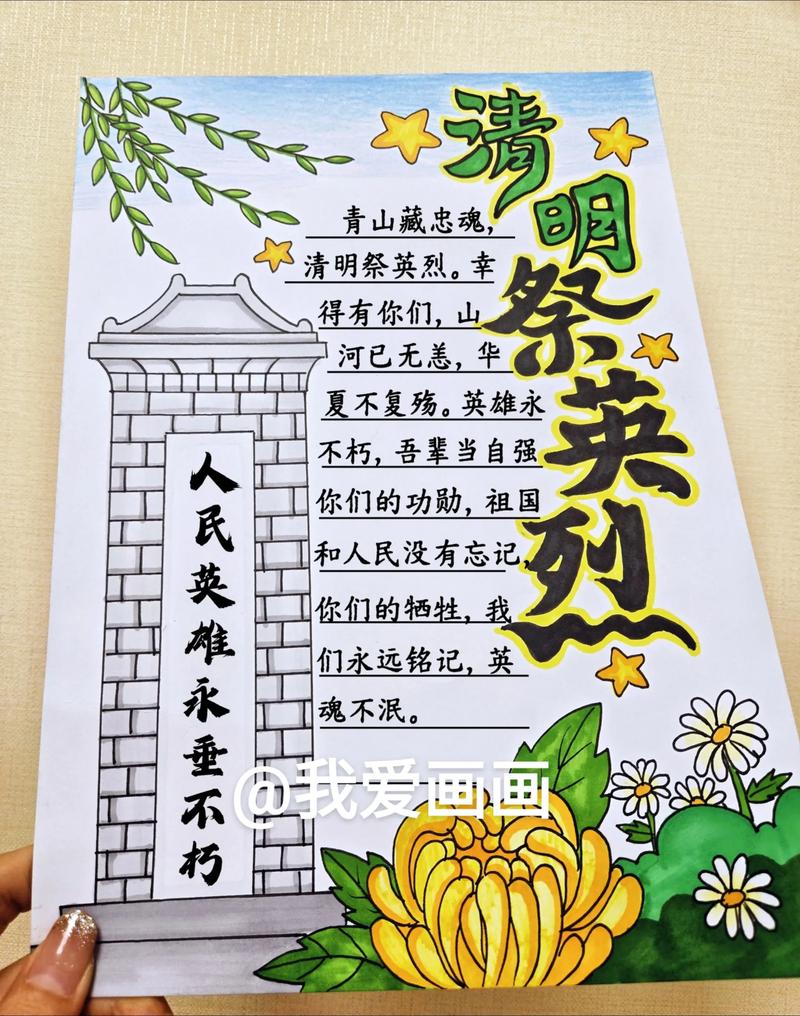 清明祭英烈
青山藏忠魂，
清明祭英烈。幸
得有你们，山
河已无恙，华
夏不复殇。英雄永
不朽，吾辈当自强
你们的功勋，祖国
和人民没有忘记，
你们的牺牲，我
们永远铭记，英
魂不泯。
人民英雄永垂不朽
@我爱画画